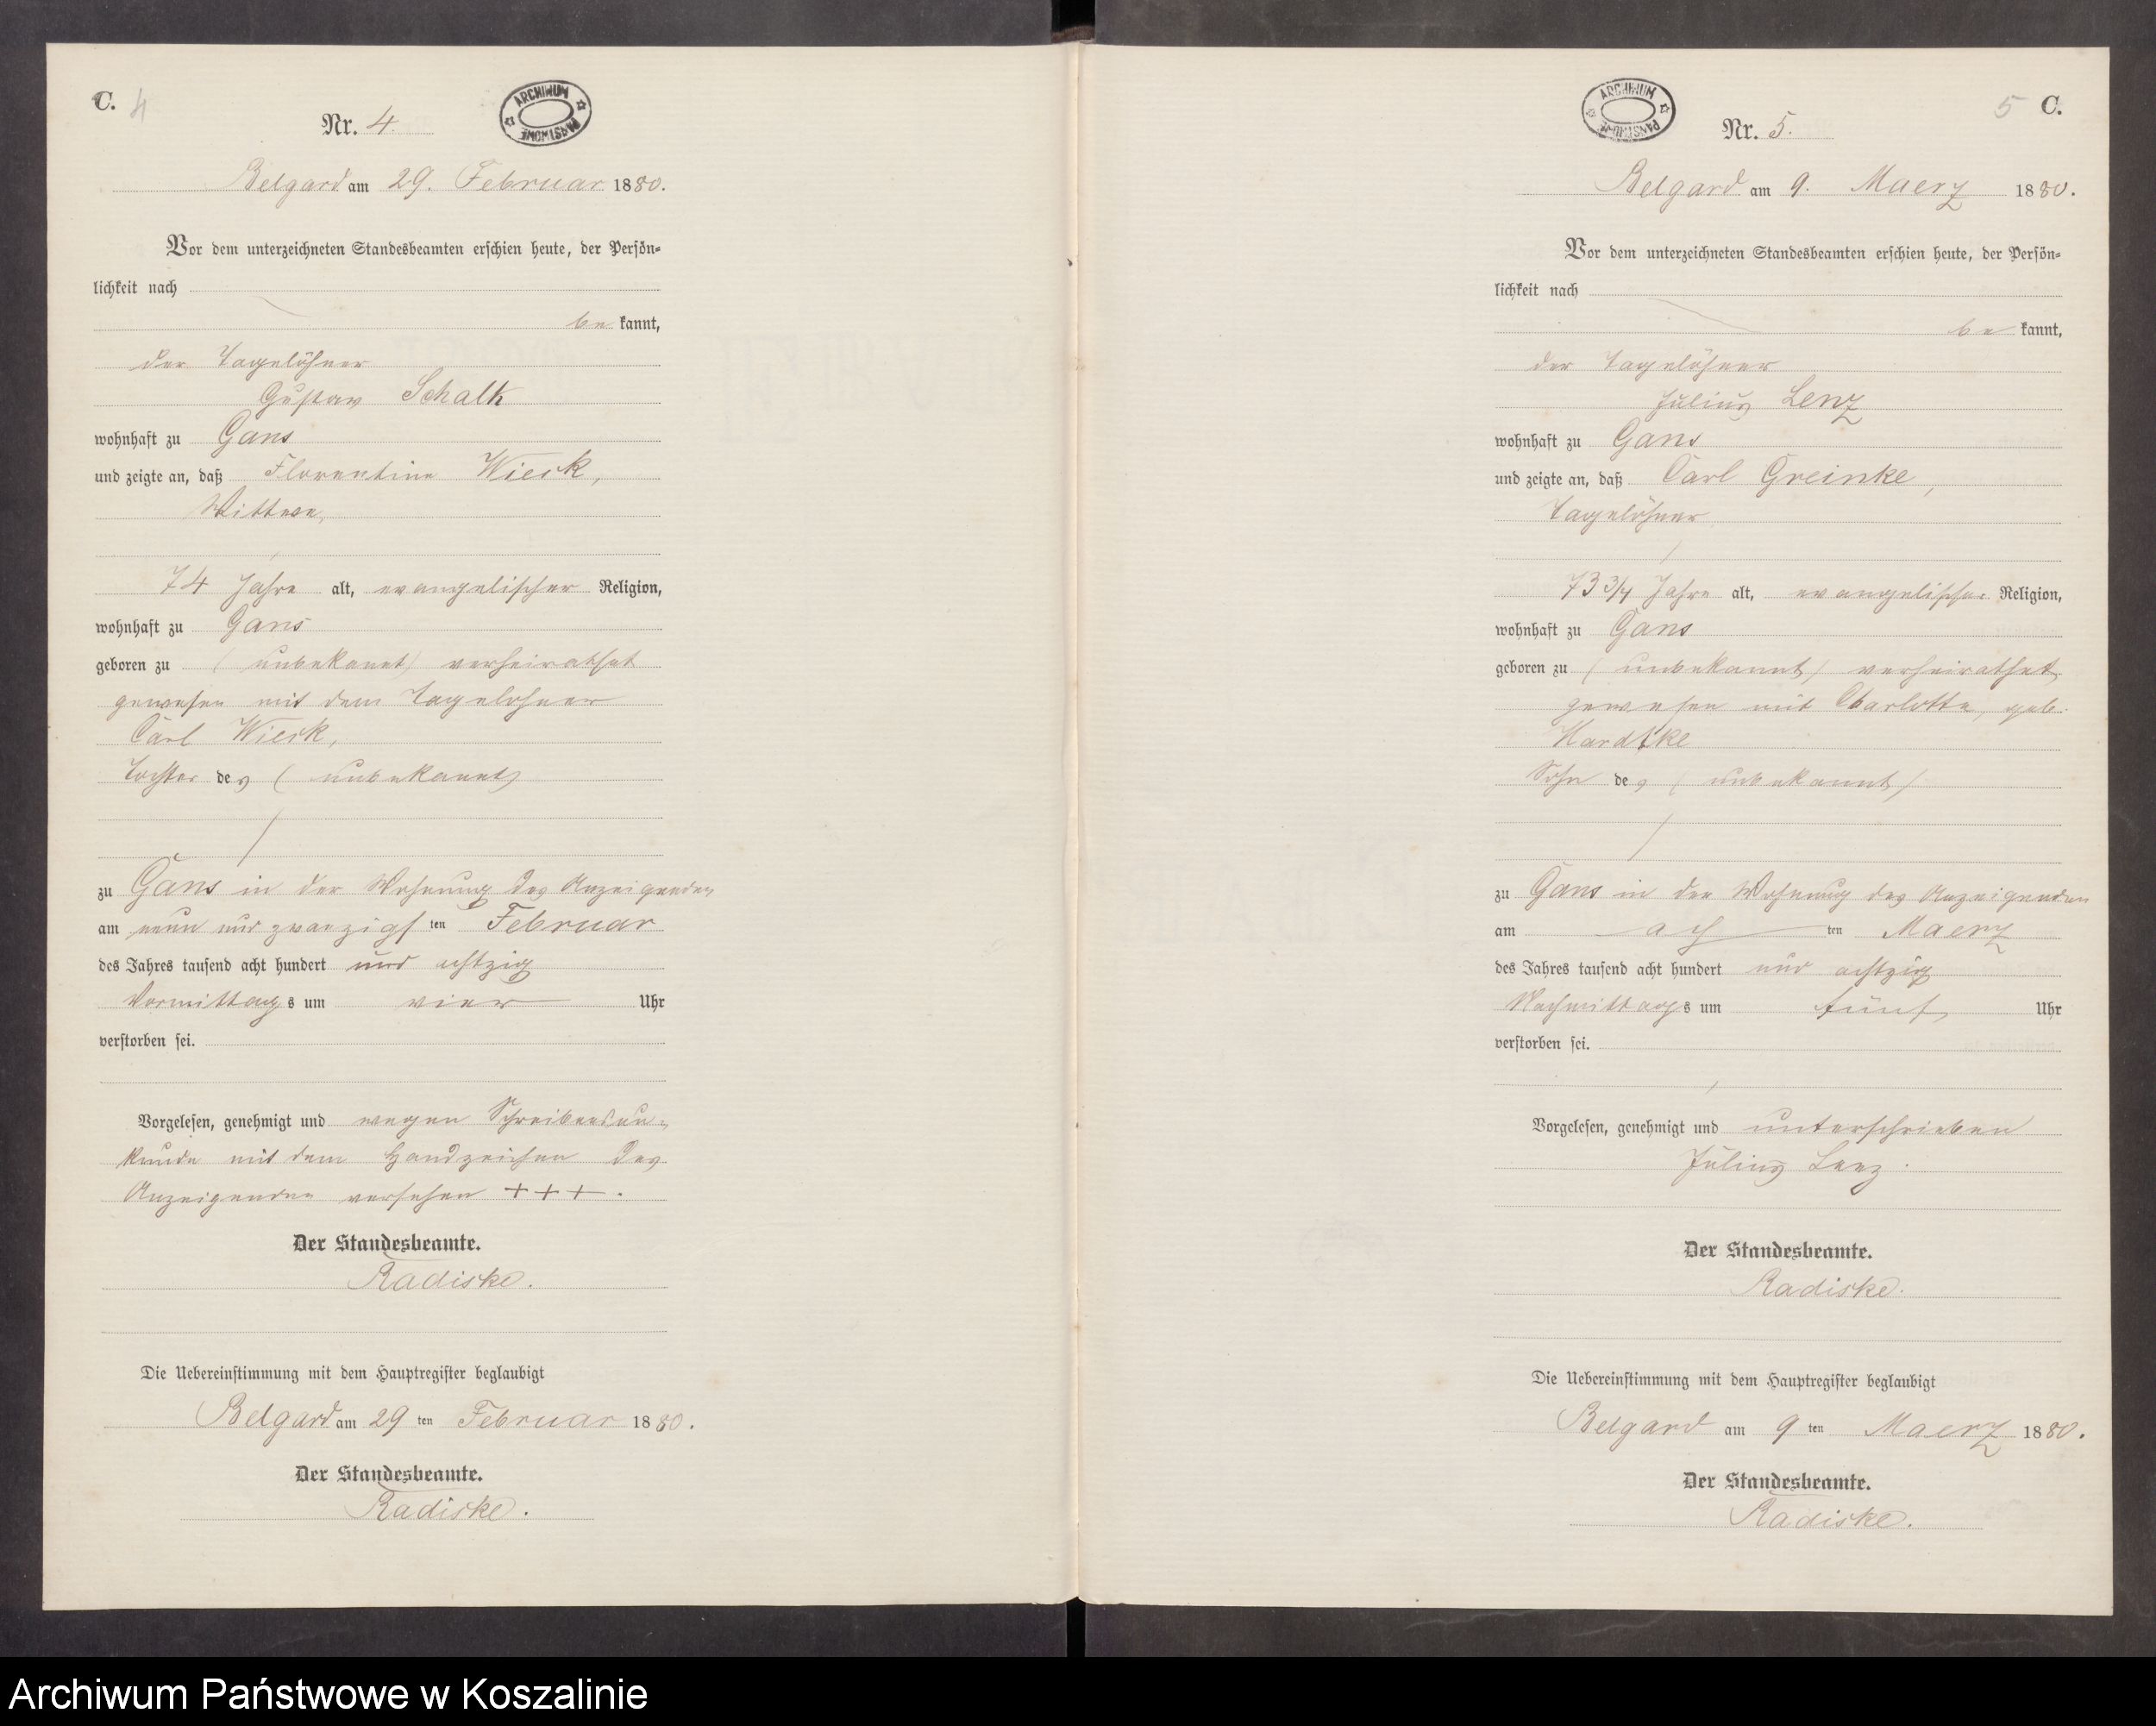 C. 4
Nr. 4.
ARCHIWUM PAŃSTWOWE
Belgard am 29. Februar 1880.
Vor dem unterzeichneten Standesbeamten erschien heute, der Persön-
lichkeit nach
be kannt,
der Tagelöhner
Gustav Schalk
wohnhaft zu Gans
und zeigte an, daß Florentine Wieck,
Wittwe,
74 Jahre alt, evangelischer Religion,
wohnhaft zu Gans
geboren zu (unbekannt) verheirathet
gewesen mit dem Tagelohner
Carl Wieck,
Tochter des (unbekannt)
zu Gans in der Wohnung des Anzeigenden
am neun und zwanzigsten Februar
des Jahres tausend acht hundert und achtzig
Vormittags um vier Uhr
verstorben sei.
Vorgelesen, genehmigt und wegen Schreibensun-
kunde mit dem Handzeichen des
Anzeigenden versehen +++.
Der Standesbeamte.
Radiske.
Die Uebereinstimmung mit dem Hauptregister beglaubigt
Belgard am 29 ten Februar 1880.
Der Standesbeamte.
Radiske.
5 C.
ARCHIWUM PAŃSTWOWE
Nr. 5.
Belgard am 9. Maerz 1880.
Vor dem unterzeichneten Standesbeamten erschien heute, der Persön-
lichkeit nach
be kannt,
der Tagelöhner
Julius Lenz
wohnhaft zu Gans
und zeigte an, daß Carl Greinke,
Tagelöhner
73 3/4 Jahre alt, evangelischer Religion,
wohnhaft zu Gans
geboren zu (unbekannt) verheirathet
gewesen mit Charlotte, geb.
Hardtke
Sohn des (unbekannt)
zu Gans in der Wohnung des Anzeigenden
am ach ten Maerz
des Jahres tausend acht hundert und achtzig
Nachmittags um fünf Uhr
verstorben sei.
Vorgelesen, genehmigt und unterschrieben
Julius Lenz.
Der Standesbeamte.
Radiske.
Die Uebereinstimmung mit dem Hauptregister beglaubigt
Belgard am 9 ten Maerz 1880.
Der Standesbeamte.
Radiske.
Archiwum Państwowe w Koszalinie